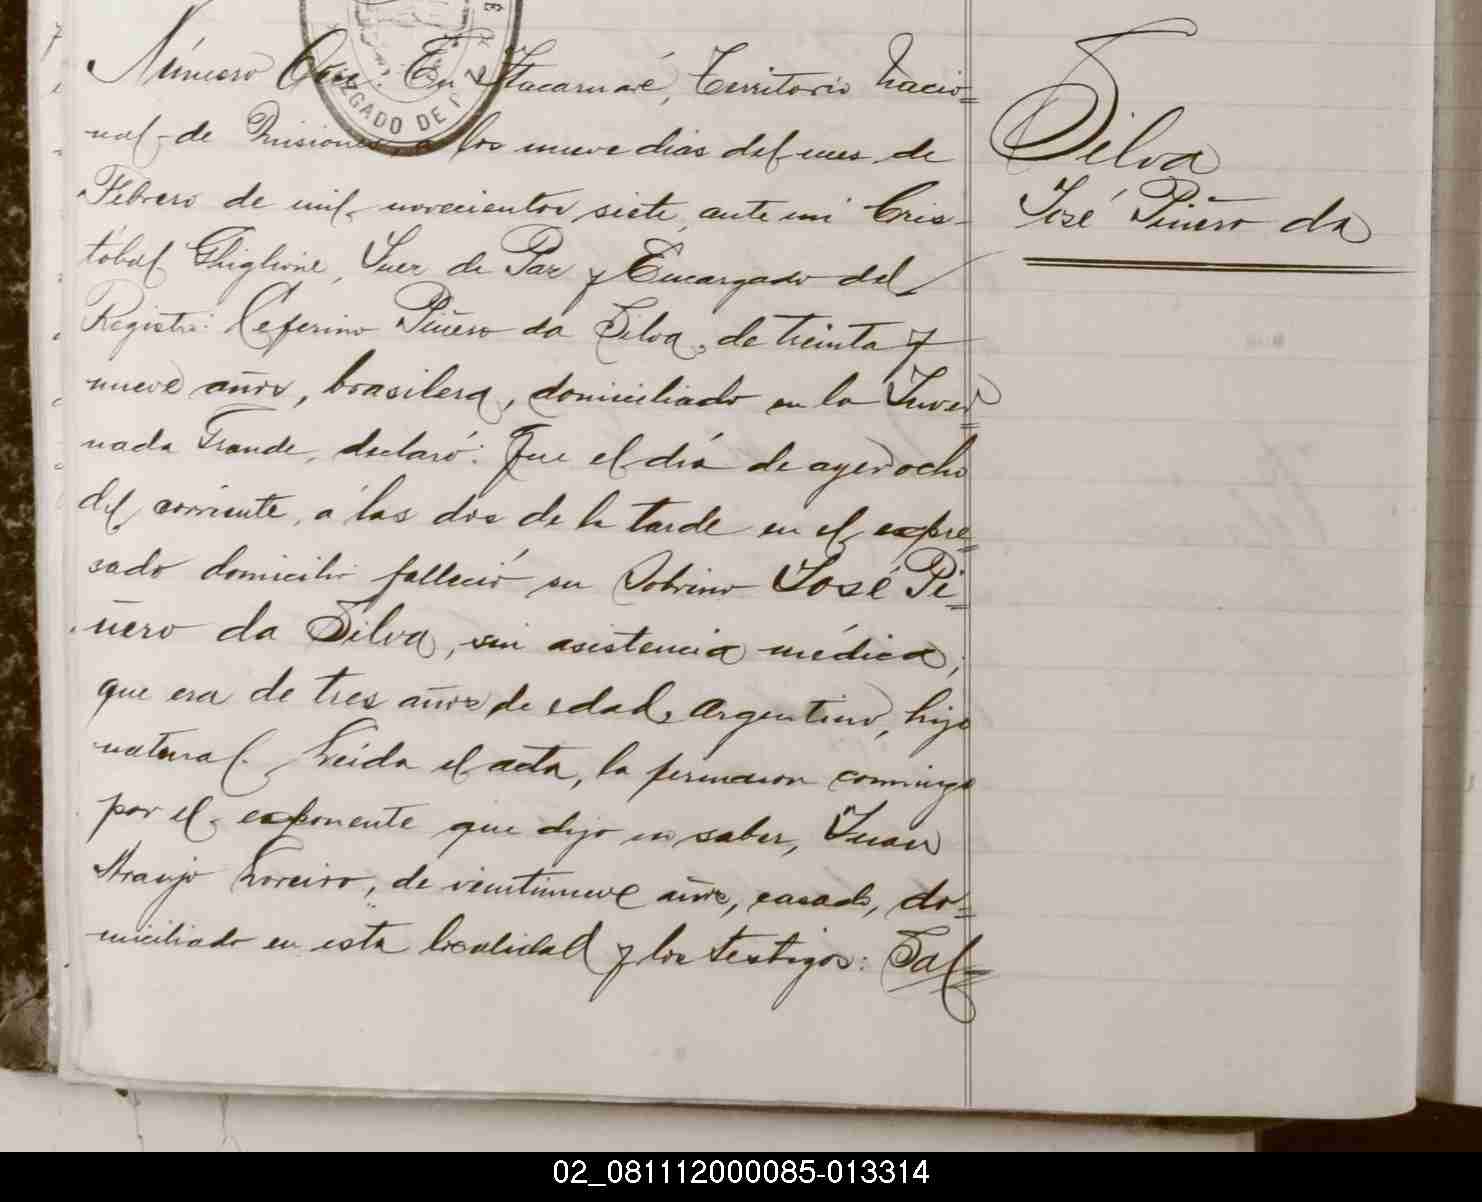 Número Once. En Itacaruaré, Territorio Nacio=
nal de Misiones, a los nueve dias del mes de
Febrero de mil novecientos siete, ante mi Cris-
tobal Ghiglione, Juez de Paz y Encargado del
Registro: Ceferino Piñero da Silva, de treinta y
nueve años, brasilero, domiciliado en la Inver
nada Grande, declaró: Que el día de ayer ocho
del corriente, a las dos de la tarde en el expre=
sado domicilio falleció su sobrino José Pi=
ñero da Silva, sin asistencia médica;
que era de tres años de edad, argentino, hijo
natural. Leida el acta, la firmaron conmigo
por el exponente que dijo no saber, Juan
Araujo Loreiro, de veintinueve años, casado, do=
miciliado en esta localidad y los testigos: Sal=
Silva
José Piñero da
JUZGADO DE PAZ
02_081112000085-013314